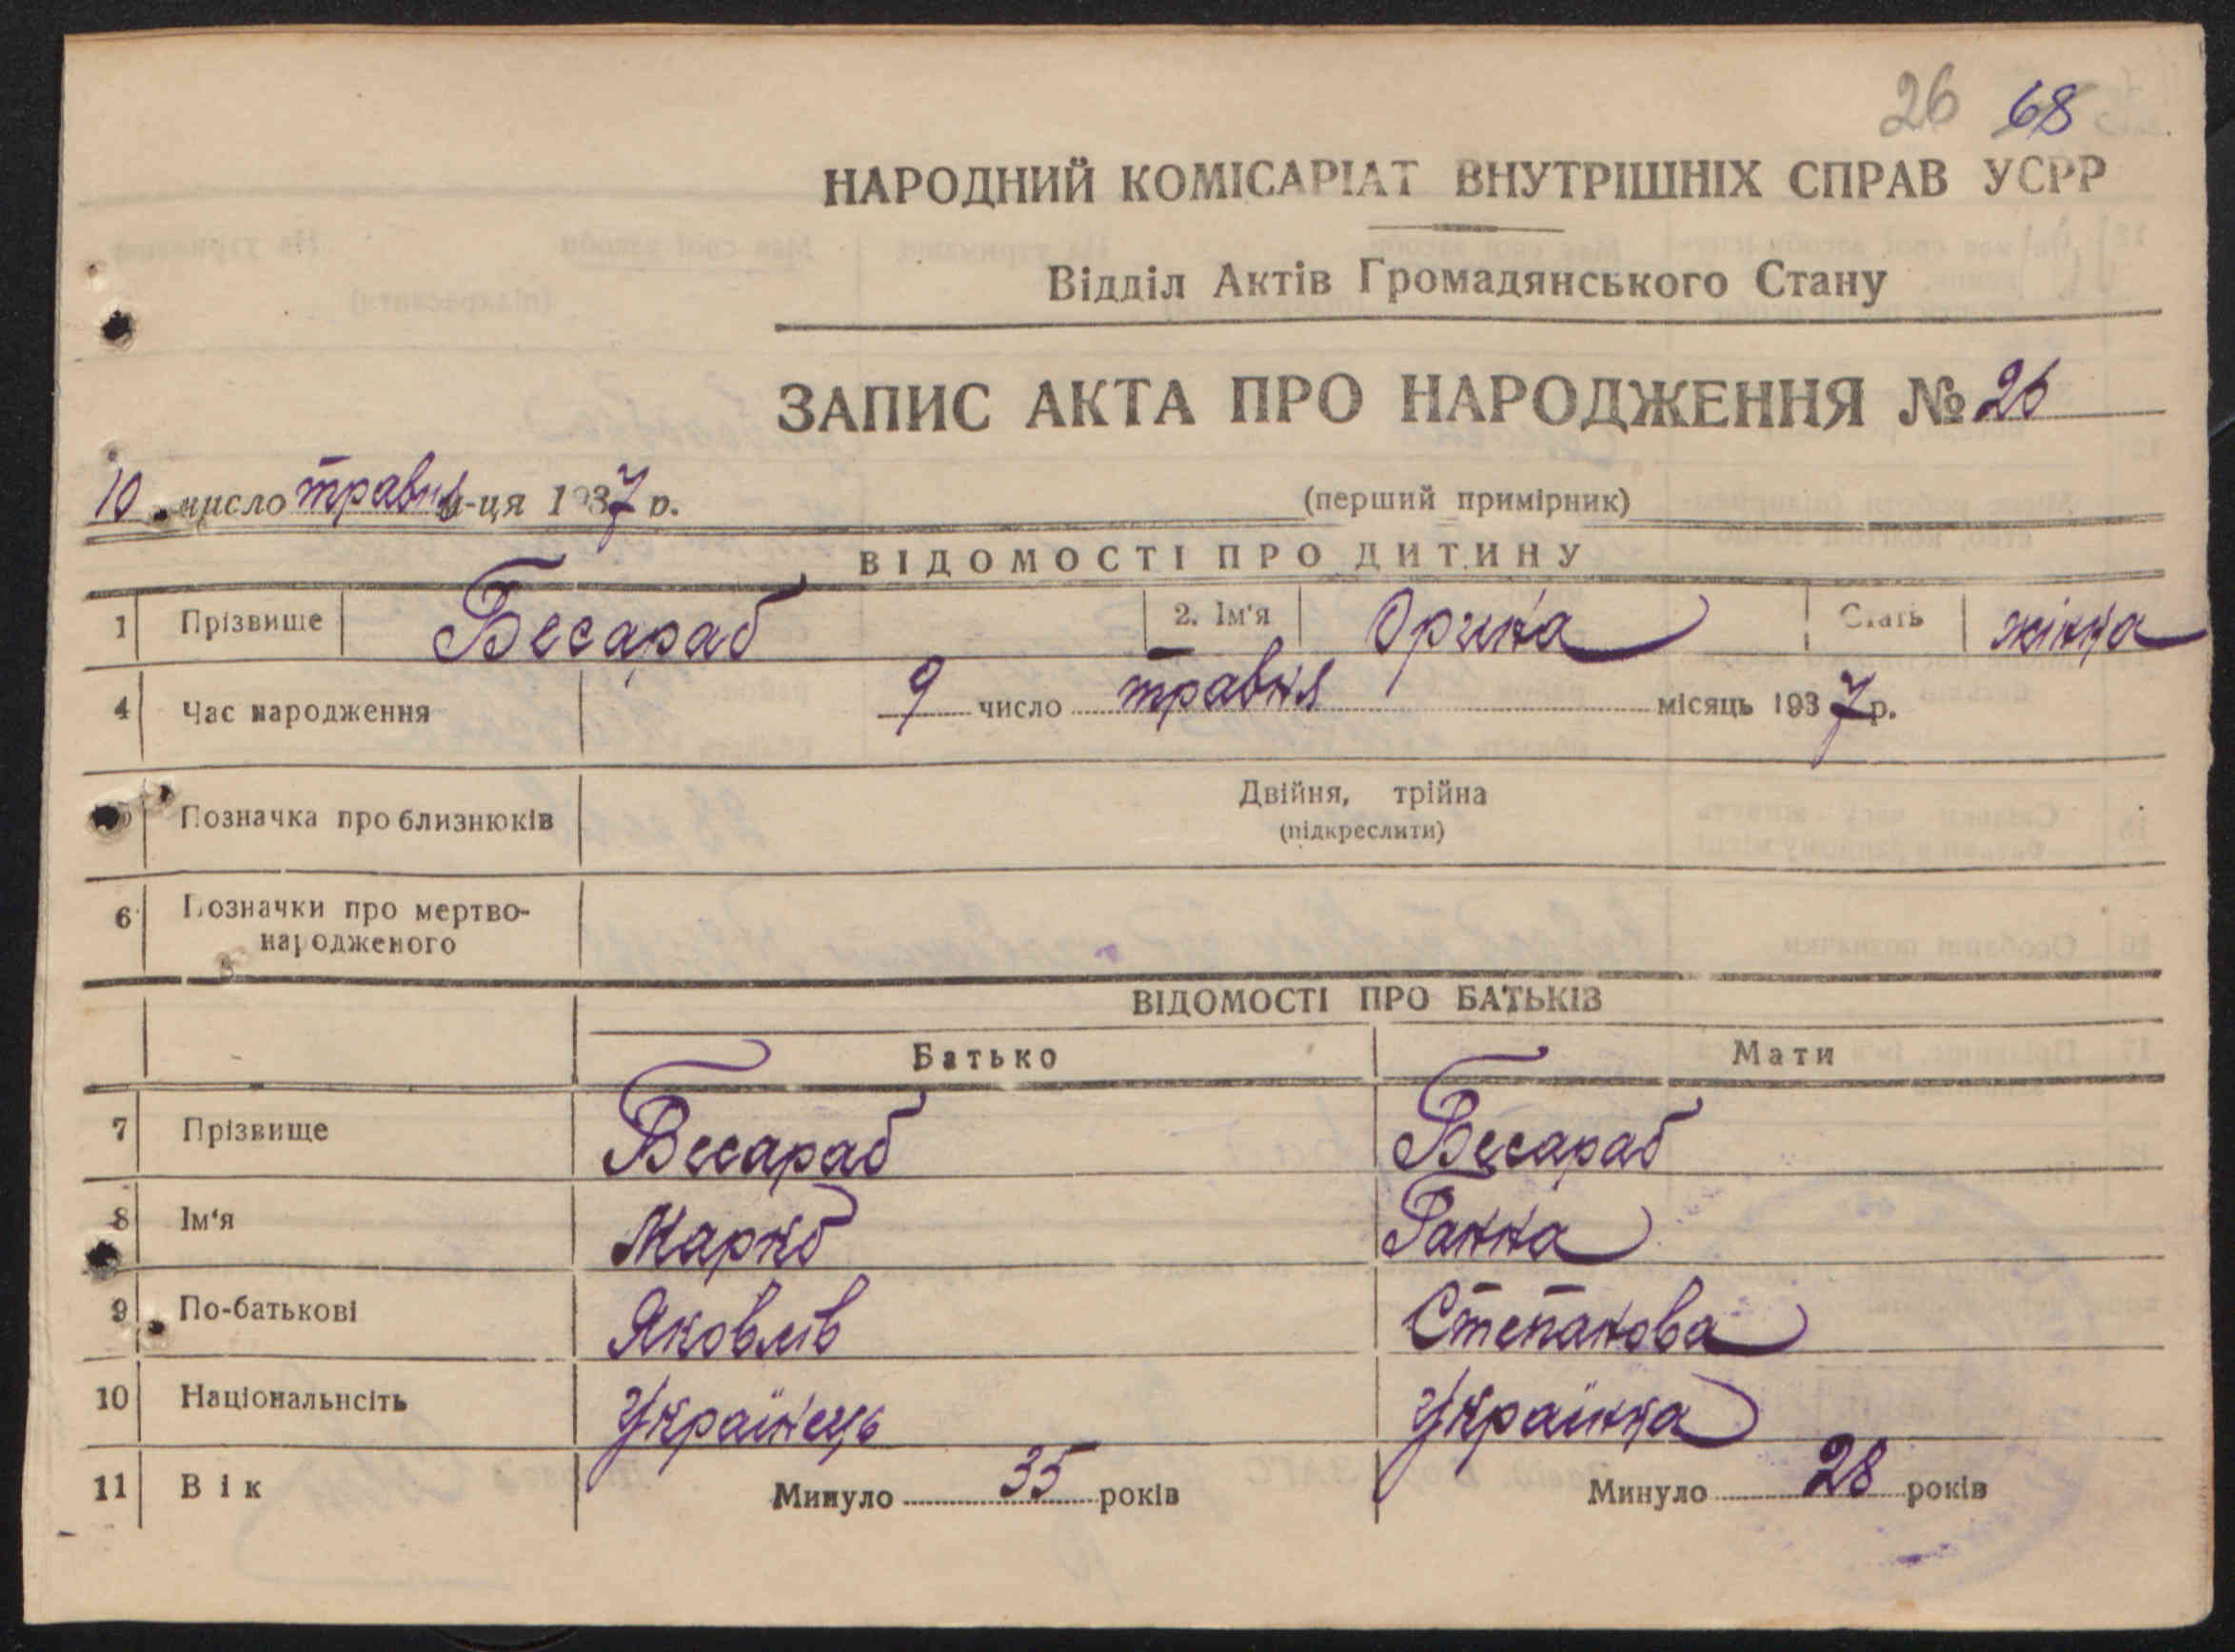 26 68
НАРОДНИЙ КОМІСАРІАТ ВНУТРІШНІХ СПРАВ УСРР
Відділ Актів Громадянського Стану
ЗАПИС АКТА ПРО НАРОДЖЕННЯ № 26
10 число травня м-ця 1937 р.
(перший примірник)
ВІДОМОСТІ ПРО ДИТИНУ
1 Прізвище Бесараб 2. Ім'я Орина Стать жінка
4 Час народження 9 число травня місяць 1937 р.
Позначка про близнюків Двійня, трійна
(підкреслити)
6 Позначки про мертво-
народженого
ВІДОМОСТІ ПРО БАТЬКІВ
Батько Мати
7 Прізвище Бесараб Бесараб
8 Ім'я Марко Ганна
9 По-батькові Яковлів Степанова
10 Національнсіть Українець Українка
11 Вік Минуло 35 років Минуло 28 років